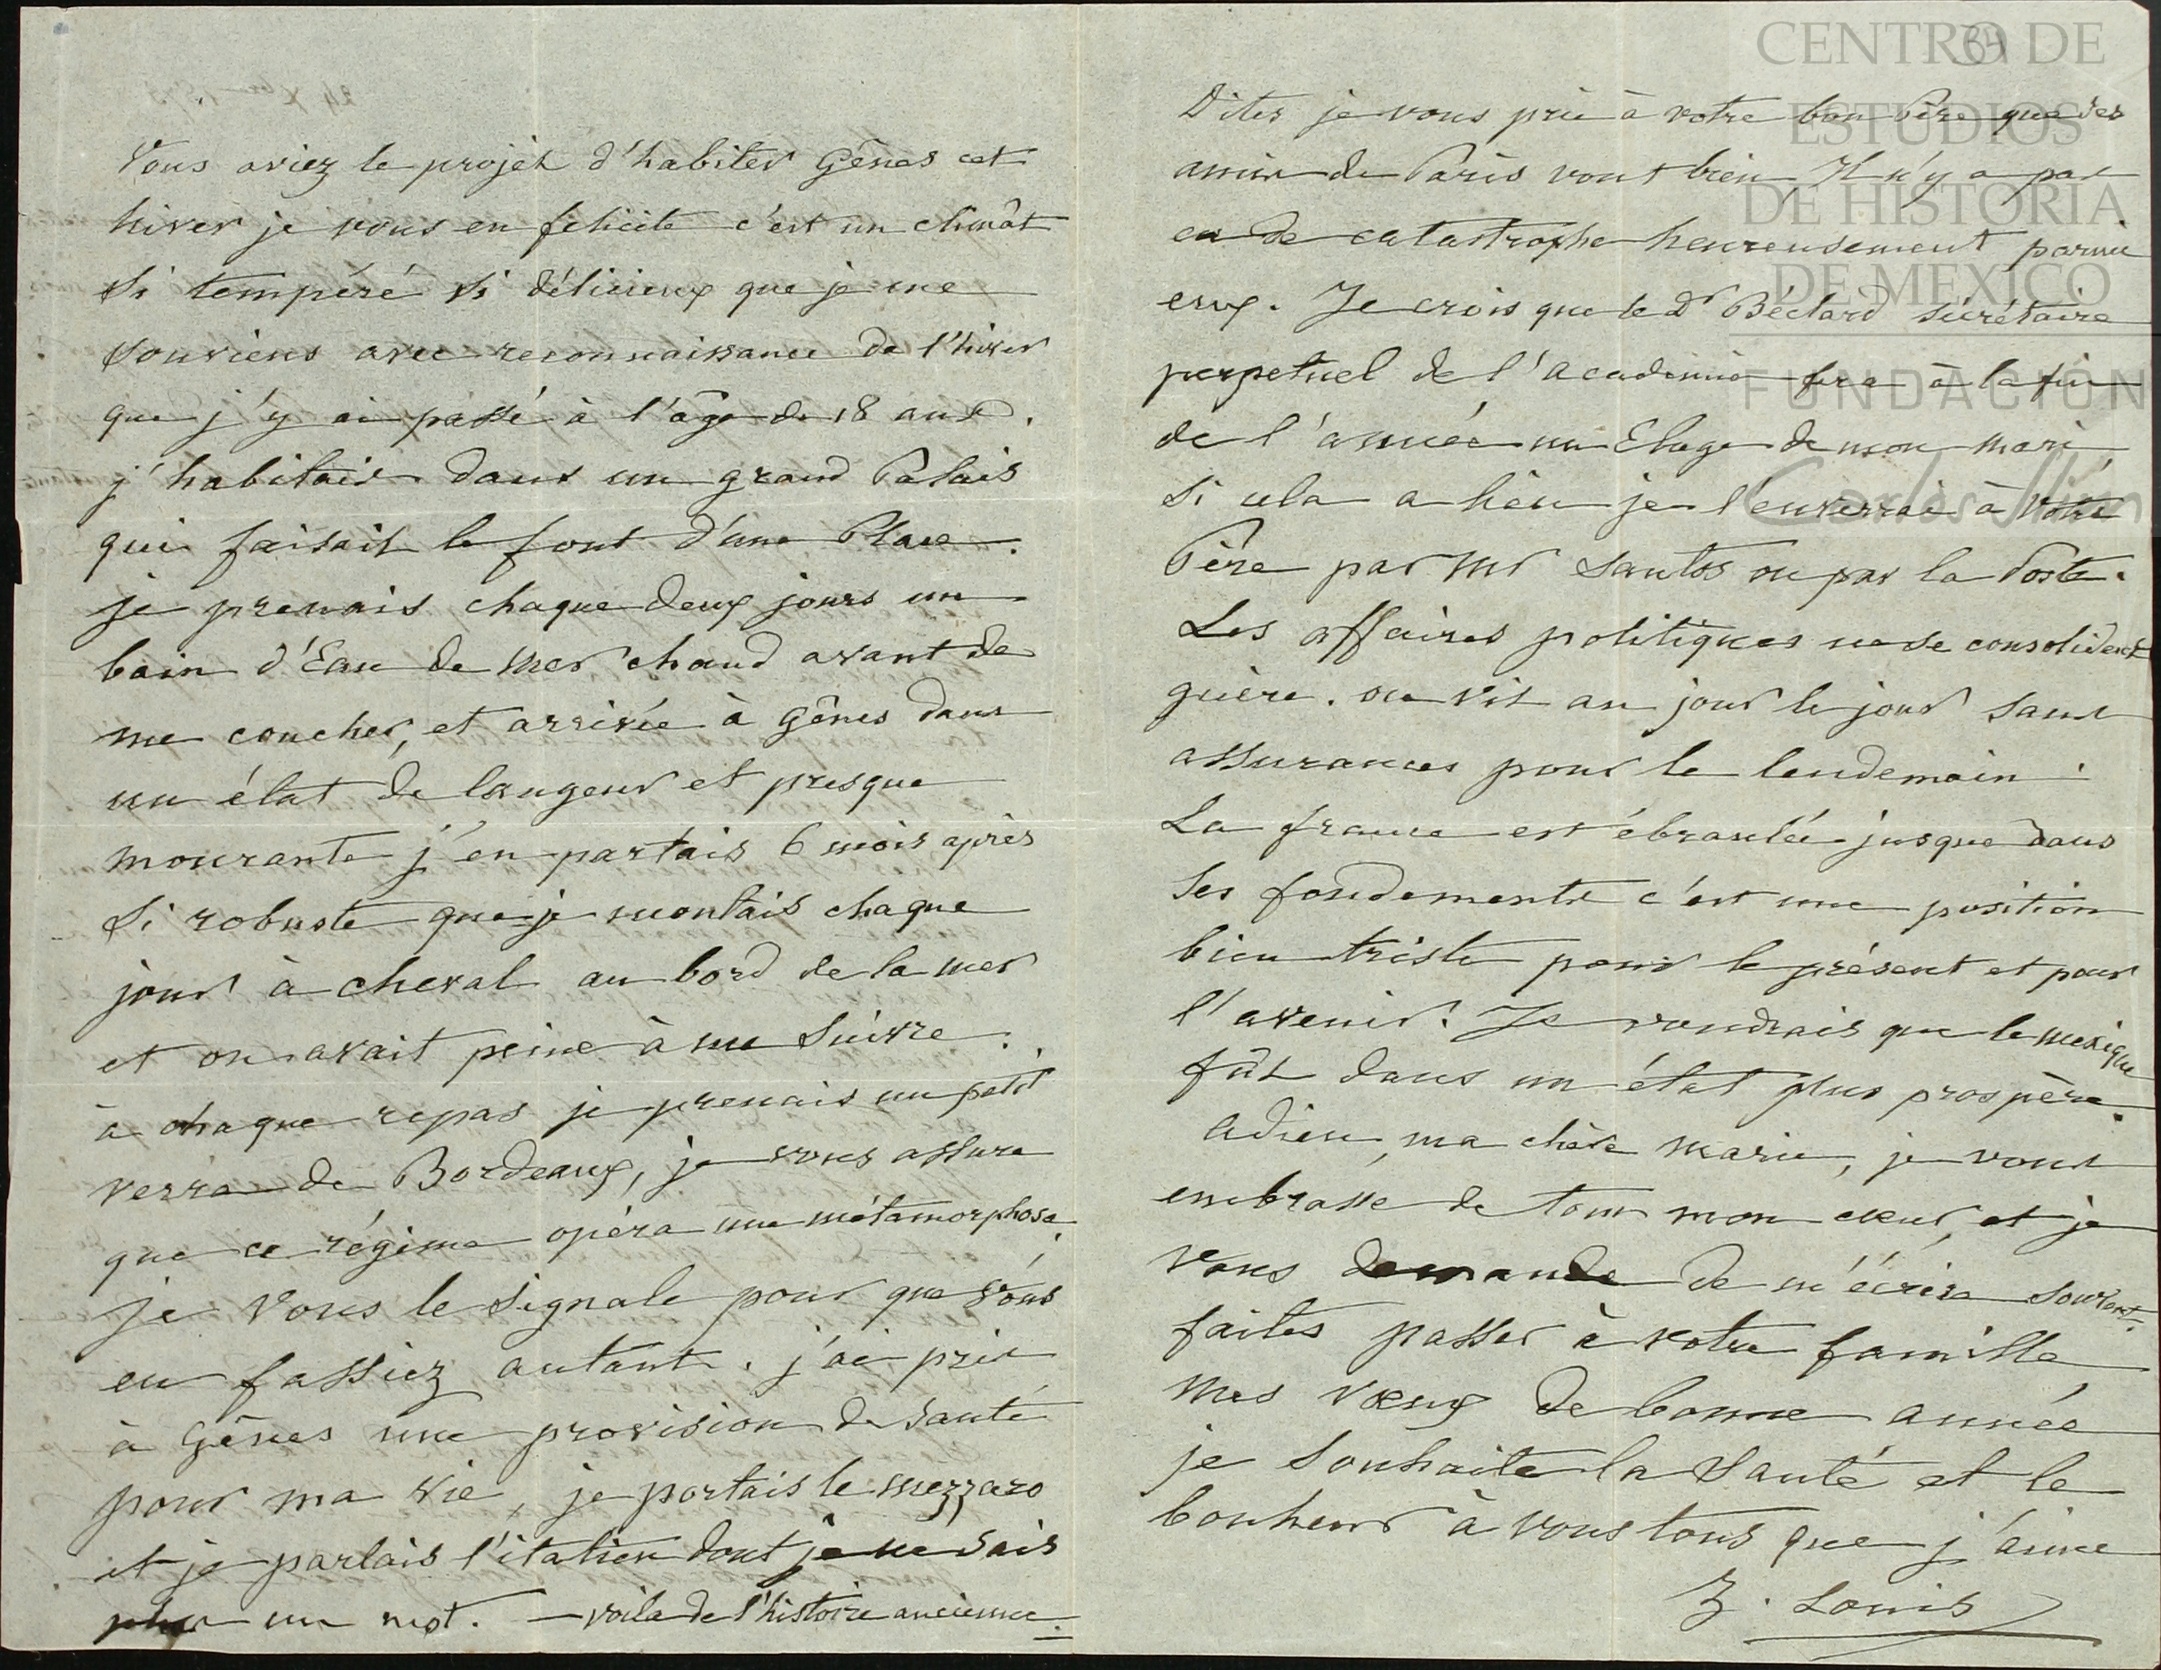 Vous aviez le projet d'habiter Gênes cet
hiver je vous en felicite c'est un climât
si tempéré si délicieux que je me
souviens avec reconnaissance de l'hiver
que j'y ai passé à l'âge de 18 ans.
j'habitais dans un grand Palais
qui faisait le font d'une Place.
je prenais chaque deux jours un
bain d'Eau de mer chaud avant de
me coucher, et arrivée à Gênes dans
un état de langeur et presque
mourante j'en partais 6 mois après
si robuste que je montais chaque
jour à cheval au bord de la mer
et on avait peine à me suivre.
à chaque repas je prenais un petit
verre de Bordeaux, je vous assure
que ce régime opéra une métamorphose.
je vous le signale pour que vous
en fassiez autant. j'ai pris
à Gênes une provision de santé
pour ma vie, je portais le mezzaro
et je parlais l'italien dont je ne sais
plus un mot. — voila de l'histoire ancienne.
34
Dites je vous prie à votre bon Père que ses
amis de Paris vont bien Il n'y a pas
eu de catastrophe heureusement parmi
eux. Je crois que le Dr Béclard sécrétaire
perpetuel de l'académie fera à la fin
de l'année un Eloge de mon mari,
si cela a lieu je l'enverrai à votre
Père par Mr Santos ou par la Poste.
Les affaires politiques ne se consolident
guère. on vit au jour le jour sans
assurances pour le lendemain.
La france est ébranlée jusque dans
ses fondements c'est une position
bien triste pour le présent et pour
l'avenir. Je voudrais que le mexique
fût dans un état plus prospère.
Adieu, ma chère Marie, je vous
embrasse de tout mon cœur, et je
vous demande de m'écrire souvent.
faites passer à votre famille
mes vœux de bonne année
je souhaite la santé et le
bonheur à vous tous que j'aime
Z. Louis
CENTRO DE
ESTUDIOS
DE HISTORIA
DE MEXICO
FUNDACIÓN
Carlos Slim